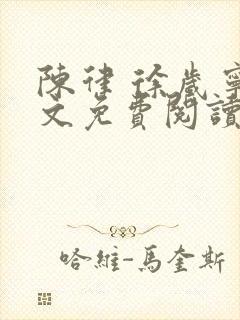 陳律 徐歲寧
文免費閱讀
哈維-馬奎斯